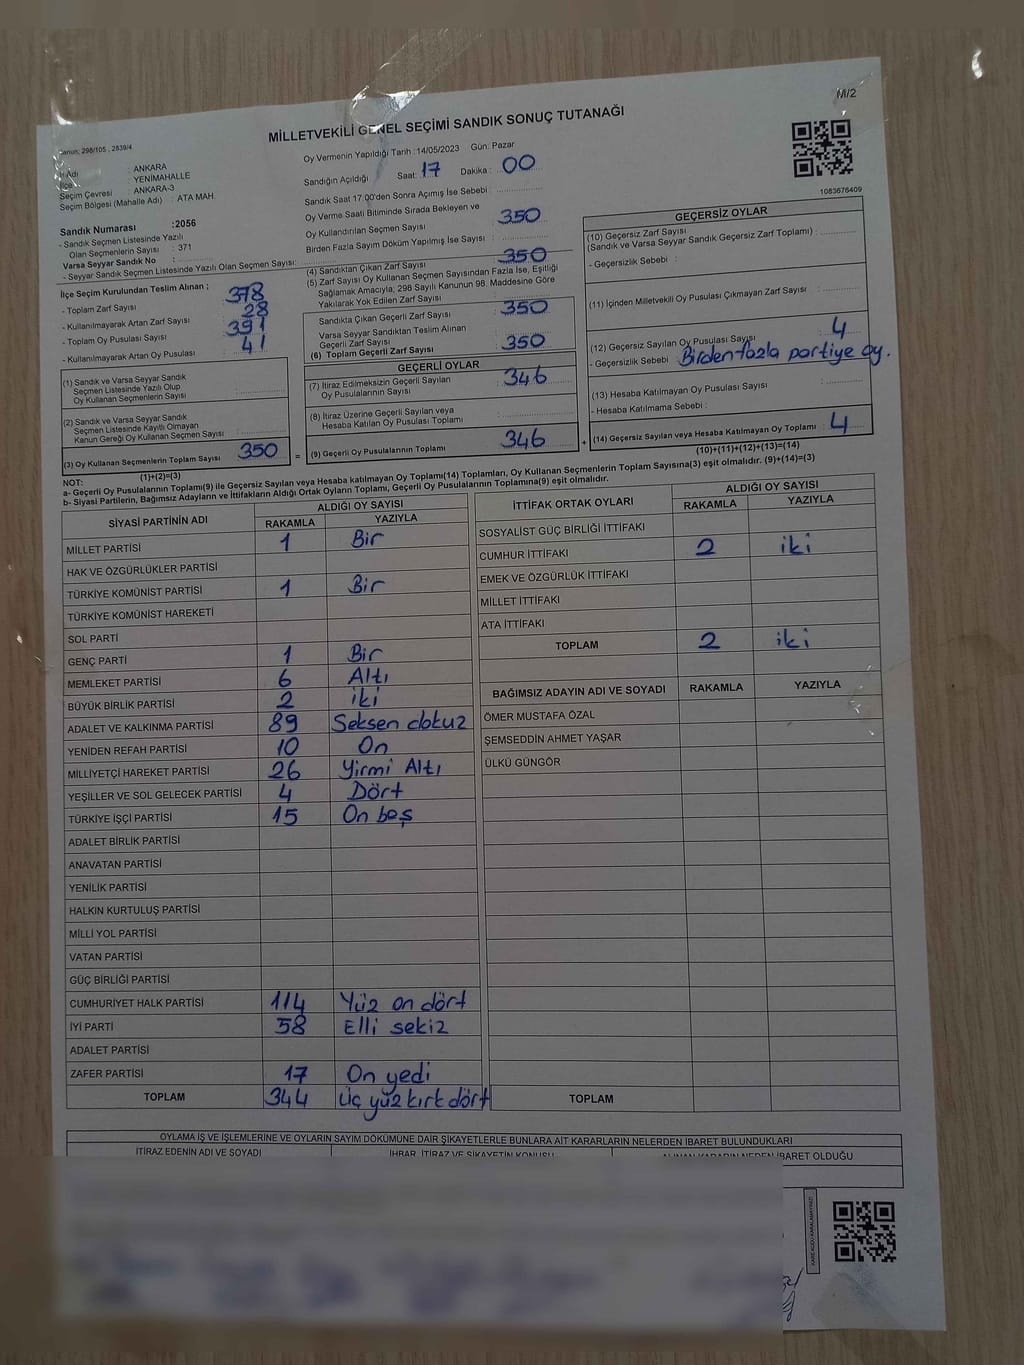 M/2
MİLLETVEKİLİ GENEL SEÇİMİ SANDIK SONUÇ TUTANAĞI
Kanun: 298/105 , 2839/4
İl Adı : ANKARA
İlçe : YENİMAHALLE
Seçim Çevresi : ANKARA-3
Seçim Bölgesi (Mahalle Adı) : ATA MAH.
Sandık Numarası :2056
- Sandık Seçmen Listesinde Yazılı
Olan Seçmenlerin Sayısı : 371
Varsa Seyyar Sandık No :
- Seyyar Sandık Seçmen Listesinde Yazılı Olan Seçmen Sayısı:
Oy Vermenin Yapıldığı Tarih :14/05/2023 Gün: Pazar
Sandığın Açıldığı Saat: 17 Dakika : 00
Sandık Saat 17.00'den Sonra Açımış İse Sebebi :
Oy Verme Saati Bitiminde Sırada Bekleyen ve
Oy Kullandırılan Seçmen Sayısı : 350
Birden Fazla Sayım Döküm Yapılmış İse Sayısı :
1083676409
İlçe Seçim Kurulundan Teslim Alınan ;
- Toplam Zarf Sayısı : 378
- Kullanılmayarak Artan Zarf Sayısı : 28
- Toplam Oy Pusulası Sayısı : 391
- Kullanılmayarak Artan Oy Pusulası : 41
(1) Sandık ve Varsa Seyyar Sandık
Seçmen Listesinde Yazılı Olup
Oy Kullanan Seçmenlerin Sayısı :
(2) Sandık ve Varsa Seyyar Sandık
Seçmen Listesinde Kayıtlı Olmayan
Kanun Gereği Oy Kullanan Seçmen Sayısı :
(3) Oy Kullanan Seçmenlerin Toplam Sayısı : 350
(1)+(2)=(3)
(4) Sandıktan Çıkan Zarf Sayısı : 350
(5) Zarf Sayısı Oy Kullanan Seçmen Sayısından Fazla İse, Eşitliği
Sağlamak Amacıyla, 298 Sayılı Kanunun 98. Maddesine Göre
Yakılarak Yok Edilen Zarf Sayısı :
Sandıkta Çıkan Geçerli Zarf Sayısı : 350
Varsa Seyyar Sandıktan Teslim Alınan
Geçerli Zarf Sayısı :
(6) Toplam Geçerli Zarf Sayısı : 350
GEÇERLİ OYLAR
(7) İtiraz Edilmeksizin Geçerli Sayılan
Oy Pusulalarının Sayısı : 346
(8) İtiraz Üzerine Geçerli Sayılan veya
Hesaba Katılan Oy Pusulası Toplamı :
= (9) Geçerli Oy Pusulalarının Toplamı : 346 +
GEÇERSİZ OYLAR
(10) Geçersiz Zarf Sayısı
(Sandık ve Varsa Seyyar Sandık Geçersiz Zarf Toplamı) :
- Geçersizlik Sebebi :
(11) İçinden Milletvekili Oy Pusulası Çıkmayan Zarf Sayısı :
(12) Geçersiz Sayılan Oy Pusulası Sayısı : 4
- Geçersizlik Sebebi : Birden fazla partiye oy.
(13) Hesaba Katılmayan Oy Pusulası Sayısı :
- Hesaba Katılmama Sebebi :
(14) Geçersiz Sayılan veya Hesaba Katılmayan Oy Toplamı : 4
(10)+(11)+(12)+(13)=(14)
NOT:
a- Geçerli Oy Pusulalarının Toplamı(9) ile Geçersiz Sayılan veya Hesaba katılmayan Oy Toplamı(14) Toplamları, Oy Kullanan Seçmenlerin Toplam Sayısına(3) eşit olmalıdır. (9)+(14)=(3)
b- Siyasi Partilerin, Bağımsız Adayların ve İttifakların Aldığı Ortak Oyların Toplamı, Geçerli Oy Pusulalarının Toplamına(9) eşit olmalıdır.
SİYASİ PARTİNİN ADI ALDIĞI OY SAYISI
RAKAMLA YAZIYLA
MİLLET PARTİSİ 1 Bir
HAK VE ÖZGÜRLÜKLER PARTİSİ
TÜRKİYE KOMÜNİST PARTİSİ 1 Bir
TÜRKİYE KOMÜNİST HAREKETİ
SOL PARTİ
GENÇ PARTİ 1 Bir
MEMLEKET PARTİSİ 6 Altı
BÜYÜK BİRLİK PARTİSİ 2 iki
ADALET VE KALKINMA PARTİSİ 89 Seksen dokuz
YENİDEN REFAH PARTİSİ 10 On
MİLLİYETÇİ HAREKET PARTİSİ 26 Yirmi Altı
YEŞİLLER VE SOL GELECEK PARTİSİ 4 Dört
TÜRKİYE İŞÇİ PARTİSİ 15 On beş
ADALET BİRLİK PARTİSİ
ANAVATAN PARTİSİ
YENİLİK PARTİSİ
HALKIN KURTULUŞ PARTİSİ
MİLLİ YOL PARTİSİ
VATAN PARTİSİ
GÜÇ BİRLİĞİ PARTİSİ
CUMHURİYET HALK PARTİSİ 114 Yüz on dört
İYİ PARTİ 58 Elli sekiz
ADALET PARTİSİ
ZAFER PARTİSİ 17 On yedi
TOPLAM 344 üç yüz kırk dört
İTTİFAK ORTAK OYLARI ALDIĞI OY SAYISI
RAKAMLA YAZIYLA
SOSYALİST GÜÇ BİRLİĞİ İTTİFAKI
CUMHUR İTTİFAKI 2 iki
EMEK VE ÖZGÜRLÜK İTTİFAKI
MİLLET İTTİFAKI
ATA İTTİFAKI
TOPLAM 2 iki
BAĞIMSIZ ADAYIN ADI VE SOYADI RAKAMLA YAZIYLA
ÖMER MUSTAFA ÖZAL
ŞEMSEDDİN AHMET YAŞAR
ÜLKÜ GÜNGÖR
TOPLAM
OYLAMA İŞ VE İŞLEMLERİNE VE OYLARIN SAYIM DÖKÜMÜNE DAİR ŞİKAYETLERLE BUNLARA AİT KARARLARIN NELERDEN İBARET BULUNDUKLARI
İTİRAZ EDENİN ADI VE SOYADI İHBAR, İTİRAZ VE ŞİKAYETİN KONUSU ALINAN KARARIN NEDEN İBARET OLDUĞU